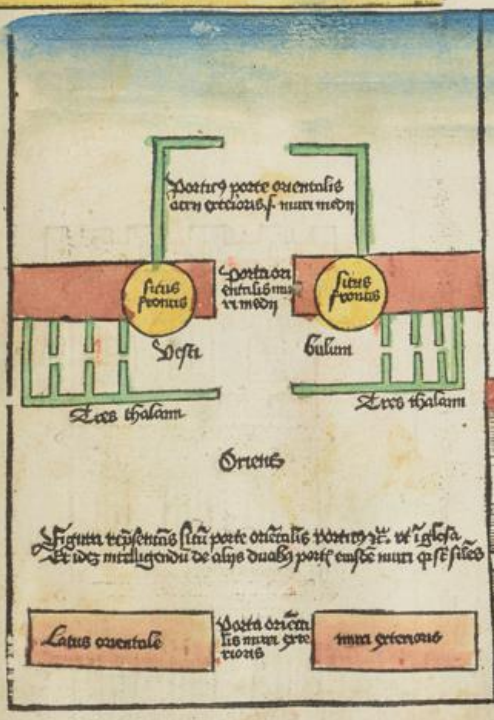 Porticꝰ porte orientalis
atrii exterioris .s. muri medii
situs
frontis
Porta ori
entalis mu
ri medii
situs
frontis
Vesti
bulum
Tres thalami
Tres thalami
Oriens
Figura rep̄sentās sitū porte oriētalis porticꝰ ⁊c̄. vt ī glosa
Et idez intelligendū de aliis duabꝰ portꝭ eiusdē muri q̄ sūt siłes
Latus orientale
Porta oriēta
lis muri exte
rioris
muri exterioris